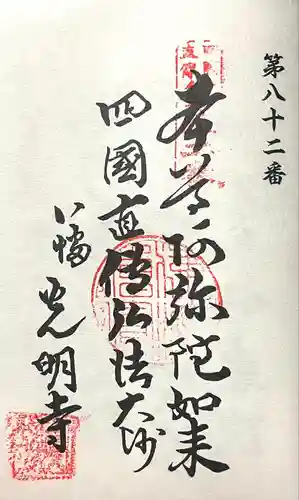 第八十二番
本尊阿弥陀如来
四國直傳弘法大師
八幡
光明寺